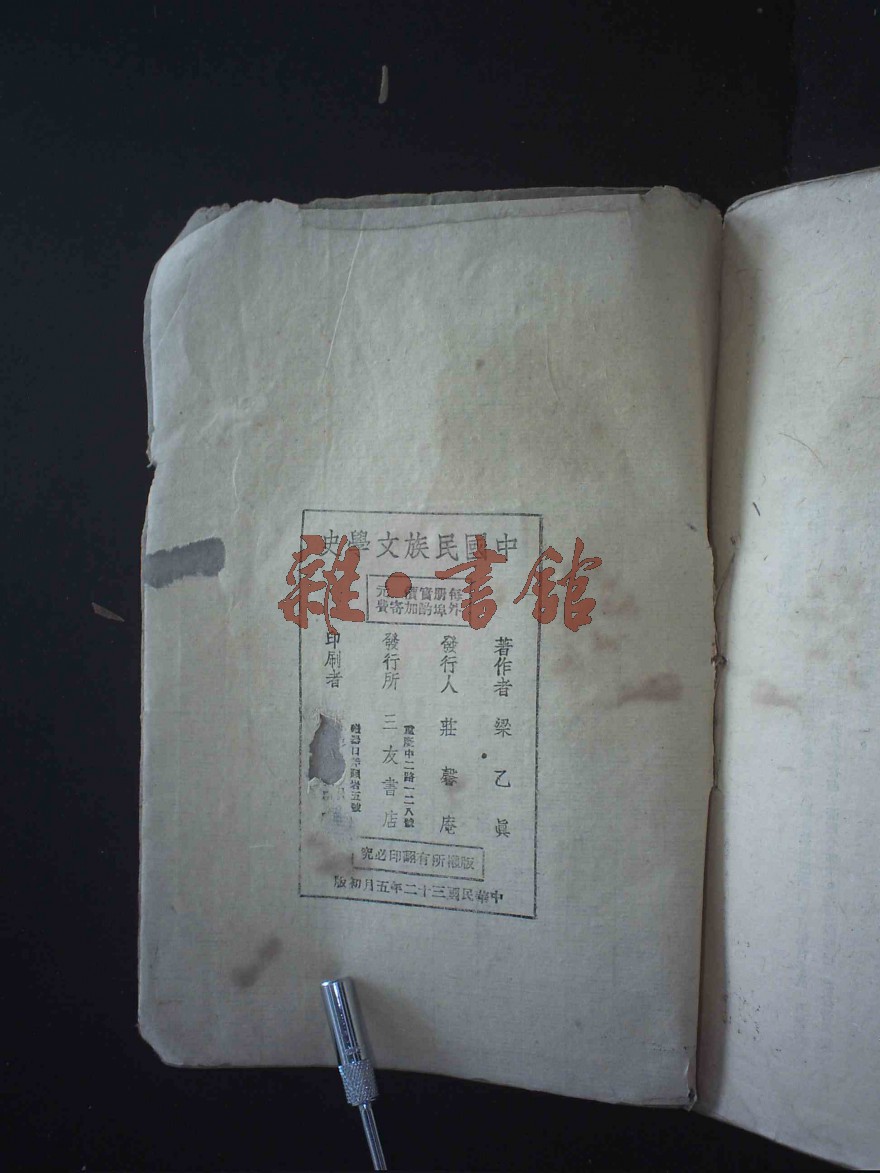 中國民族文學史
每冊實價元
外埠酌加寄費
著作者 梁乙眞
發行人 莊馨庵
重慶中二路一二八號
發行所 三友書店
印刷者
版權所有翻印必究
中華民國三十二年五月初版
雜·書館